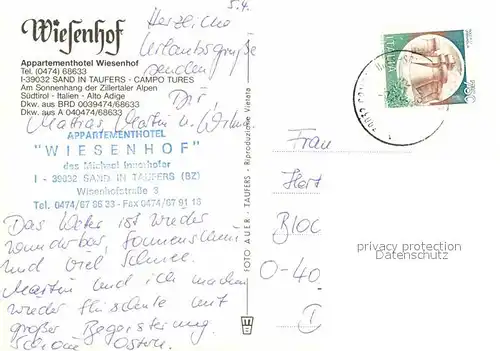 5.4.
Herzliche
Urlaubsgrüße
senden
Dir,
Mattias, Martin u.
Wiesenhof
Appartementhotel Wiesenhof
Tel. (0474) 68633
I-39032 SAND IN TAUFERS - CAMPO TURES
Am Sonnenhang der Zillertaler Alpen
Südtirol - Italien - Alto Adige
Dkw. aus BRD 0039474/68633
Dkw. aus A 040474/68633
APPARTEMENTHOTEL
"WIESENHOF"
des Michael Innerhofer
I - 39032 SAND IN TAUFERS (BZ)
Wiesenhofstraße 3
Tel. 0474/67 86 33 - Fax 0474/67 91 16
Das Wetter ist wieder
wunderbar, Sonnenschein
und viel Schnee.
Martin und ich machen
wieder Skischule mit
großer Begeisterung.
Schöne Ostern.
FOTO AUER - TAUFERS - Riproduzione Vietata
ITALIA
Frau
Hert
BLOC
O-40
privacy protection
Datenschutz